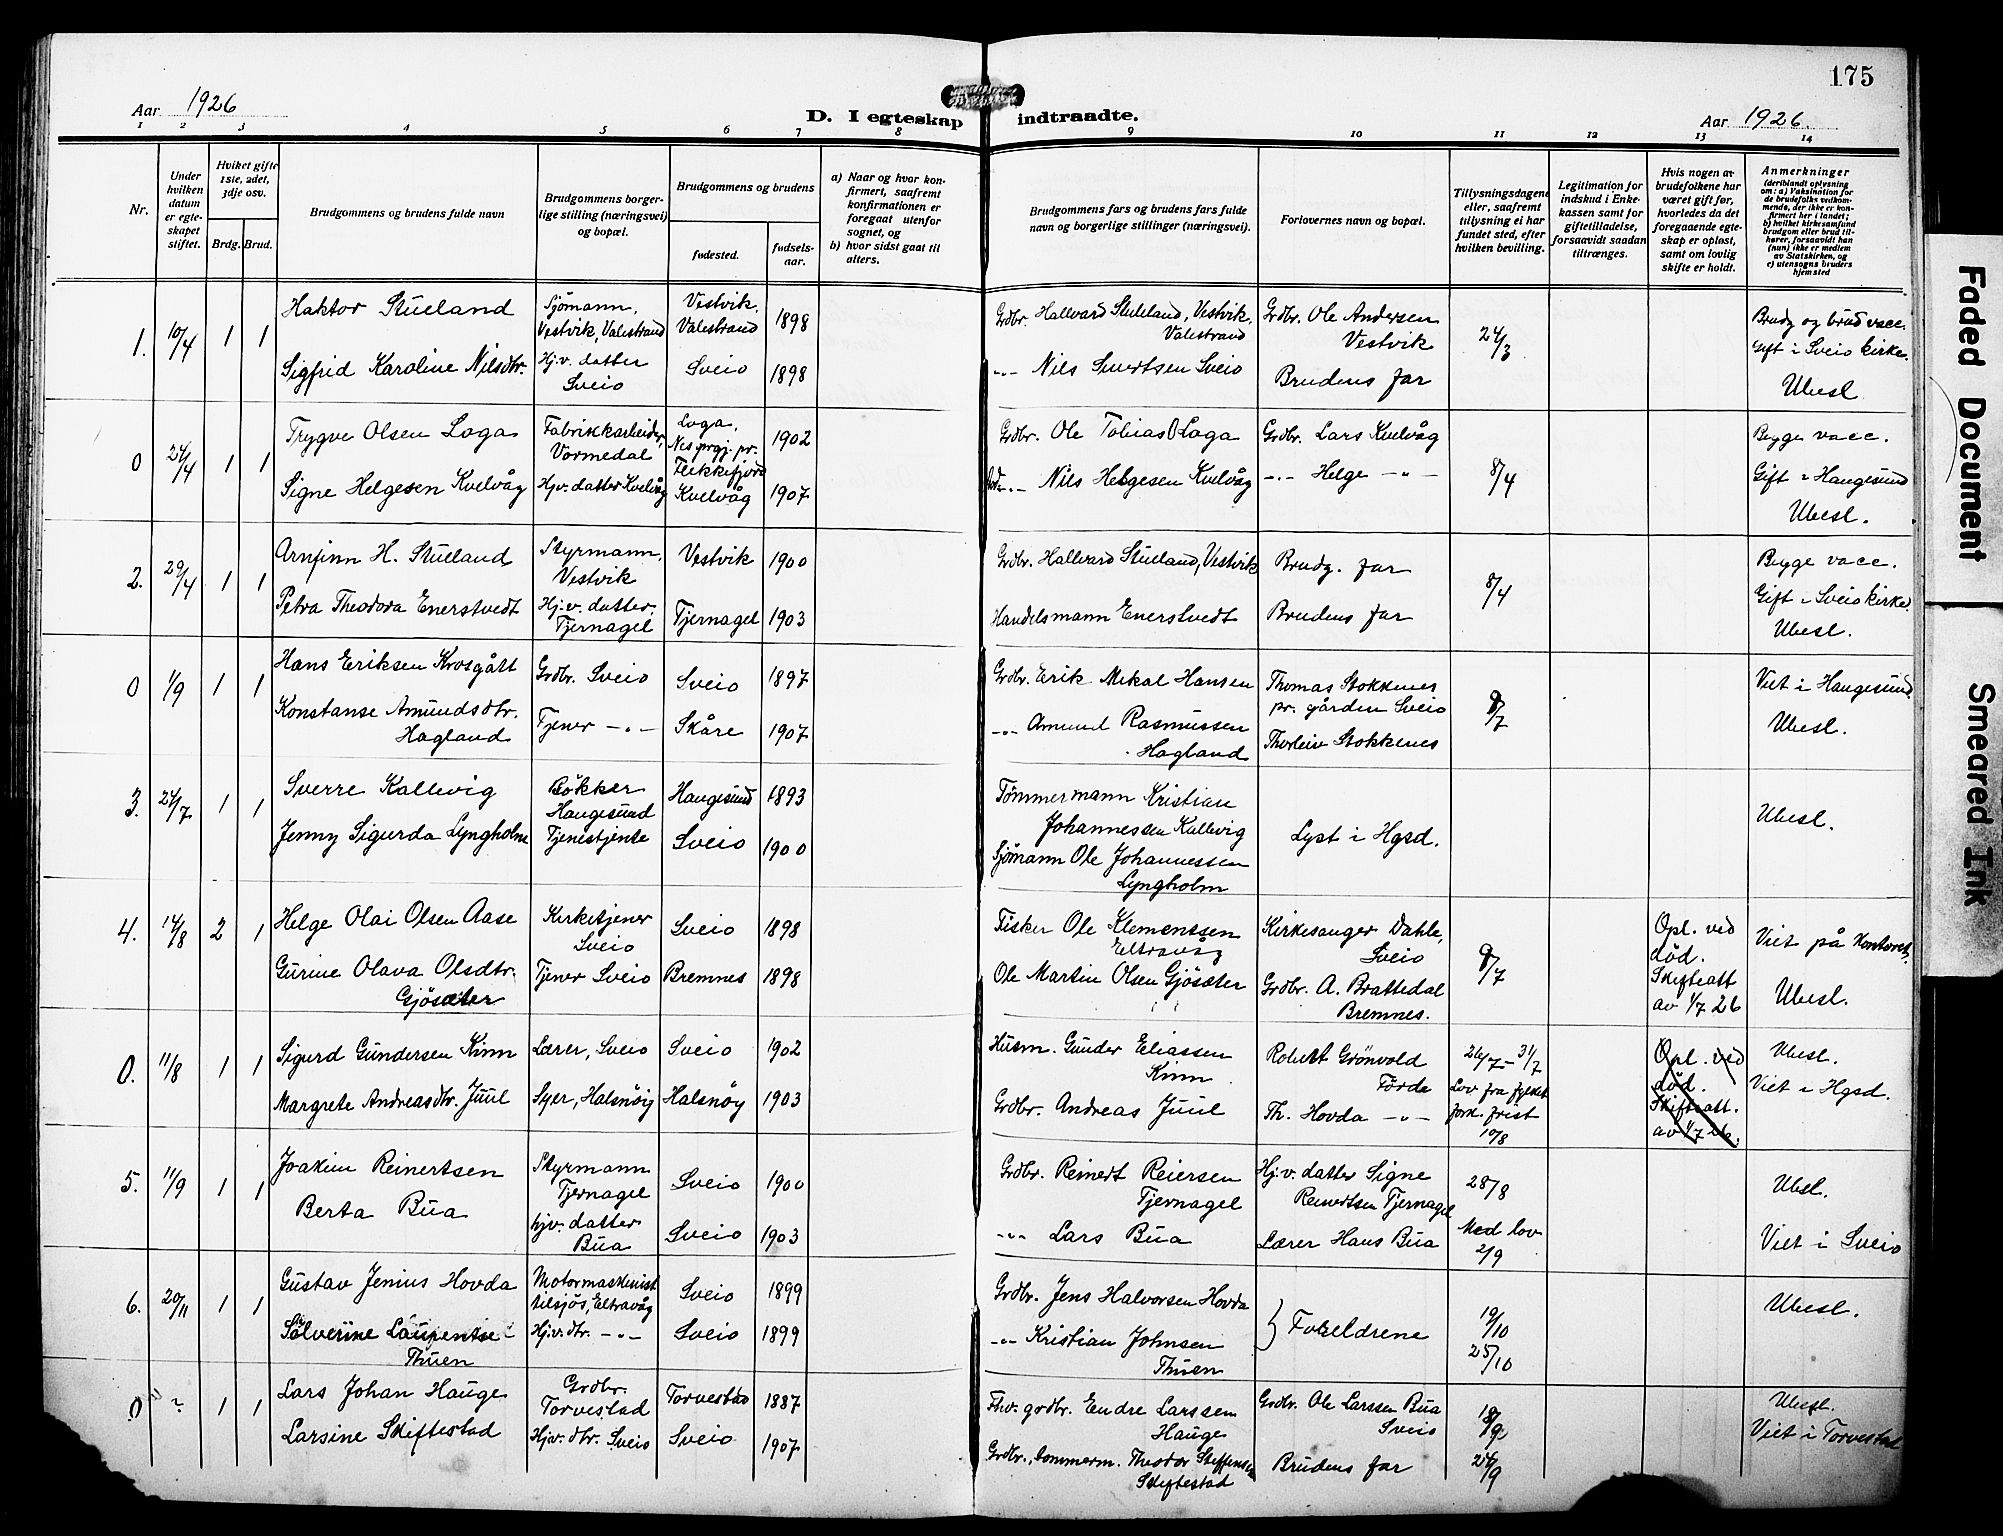 175
Aar 1926
D. I egteskap indtraadte.
Aar 1926.
1 2 3 4 5 6 7 8 9 10 11 12 13 14
Nr.
Under hvilken datum er egteskapet stiftet.
Hvilket gifte 1ste, 2det, 3dje osv.
Brdg. Brud.
Brudgommens og brudens fulde navn
Brudgommens borgerlige stilling (næringsvei) og bopæl.
Brudgommens og brudens
fødested.
fødselsaar.
a) Naar og hvor konfirmert, saafremt konfirmationen er foregaat utenfor sognet, og
b) hvor sidst gaat til alters.
Brudgommens fars og brudens fars fulde navn og borgerlige stillinger (næringsvei).
Forlovernes navn og bopæl.
Tillysningsdagene eller, saafremt tillysning ei har fundet sted, efter hvilken bevilling.
Legitimation for indskud i Enkekassen samt for giftetilladelse, forsaavidt saadan tiltrænges.
Hvis nogen av brudefolkene har været gift før, hvorledes da det foregaaende egteskap er opløst, samt om lovlig skifte er holdt.
Anmerkninger
(deriblandt oplysning om: a) Vaksination for de brudefolks vedkommende, der ikke er konfirmert her i landet; b) hvilket kirkesamfund brudgom eller brud tilhører, forsaavidt han (hun) ikke er medlem av Statskirken, og c) utensogns bruders hjemsted
1. 10/4 1 1
Haktor Stueland
Sjömann, Vestvik, Valestrand
Vestvik, Valestrand
1898
Grdbr. Hallvard Stueland, Vestvik, Valestrand
Grdbr. Ole Andersen Vestvik
24/3
Brudg og brud vacc.
Gift i Sveio kirke.
Ubesl.
Sigfrid Karoline Nilsdtr.
Hj.v. datter Sveio
Sveio
1898
-"- Nils Sivertsen Sveio
Brudens far
0 24/4 1 1
Trygve Olsen Loga
Fabrikkarbeider, Vormedal
Loga, Nes prgj. pr. Flekkefjord
1902
Grdbr. Ole Tobias Loga
Grdbr. Lars Kvelvåg
8/4
Begge vacc.
Gift i Haugesund
Ubesl.
Signe Helgesen Kvelvåg
Hj.v. datter Kvelvåg
Kvelvåg
1907
-"- Nils Helgesen Kvelvåg
-"- Helge -"-
2. 29/4 1 1
Arnfinn H. Stueland
Styrmann, Vestvik
Vestvik
1900
Grdbr. Hallvard Stueland, Vestvik
Brudg. far
8/4
Begge vacc.
Gift i Sveio kirke.
Ubesl.
Petra Theodora Enerstvedt
Hj.v. datter. Tjernagel
Tjernagel
1903
Handelsmann Enerstvedt
Brudens far
0 1/9 1 1
Hans Eriksen Krosgått
Grdbr. Sveio
Sveio
1897
Grdbr. Erik Mikal Hansen
Thomas Stokkenes pr. gården Sveio
9/7
Viet i Haugesund
Ubesl.
Konstanse Amundsdtr. Hagland
Tjener -"-
Skåre
1907
-"- Amund Rasmussen Hagland
Thorleiv Stokkenes
3. 24/7 1 1
Sverre Kallevig
Bökker Haugesund
Haugesund
1893
Tömmermann Kristian Johannessen Kallevig
Lyst i Hgsd.
Ubesl.
Jenny Sigurda Lyngholm
Tjenestjente
Sveio
1900
Sjömann Ole Johannessen Lyngholm
4. 14/8 2 1
Helge Olai Olsen Aase
Kirketjener Sveio
Sveio
1898
Fisker Ole Klementsen Eltravåg
Kirkesanger Dahle, Sveio
9/7
Opl. ved död. Skifteatt av 1/7 26
Viet på Kontoret.
Ubesl.
Gurine Olava Olsdtr. Gjösæter
Tjener Sveio
Bremnes
1898
Ole Martin Olsen Gjösæter
Grdbr. A. Brattedal Bremnes.
0. 11/8 1 1
Sigurd Gundersen Kinn
Lærer, Sveio
Sveio
1902
Husm. Gunder Eliassen Kinn
Robert Grönvold Förde
26/7 - 31/7
Lov fra fylket fork. frist 10/8
Opl. ved död. Skifteatt. av 1/7 26.
Ubesl.
Viet i Hgsd.
Margrete Andreasdtr. Juul
Syer, Halsnöy
Halsnöy
1903
Grdbr. Andreas Juul
Th. Hovda -"-
5. 11/9 1 1
Joakim Reinertsen
Styrmann Tjernagel
Sveio
1900
Grdbr. Reinert Reiersen Tjernagel
Hj.v. datter Signe Reinertsen Tjernagel
28/8
Ubesl.
Berta Bua
hjv. datter Bua
Sveio
1903
-"- Lars Bua
Lærer Hans Bua
Med lov 2/9
Viet i Sveio
6. 20/11 1 1
Gustav Jenius Hovda
Motormaskinist tilsjös, Eltravåg
Sveio
1899
Grdbr. Jens Halvorsen Hovda
Foreldrene
19/10
25/10
Ubesl.
Sölverine Laurentse Thuen
Hj.v. dtr. -"-
Sveio
1899
-"- Kristian Johnsen Thuen
0 ? 1 1
Lars Johan Hauge
Grdbr. Torvestad
Torvestad
1887
Fhv. grdbr. Endre Larssen Hauge
Grdbr. Ole Larssen Bua Sveio
Ubesl.
Viet i Torvestad
Larsine Skiftestad
Hjv. dtr. Sveio
Sveio
1907
Grdbr., Tommerm. Theodor Steffensen Skiftestad
Brudens far
Faded Document
Smeared Ink